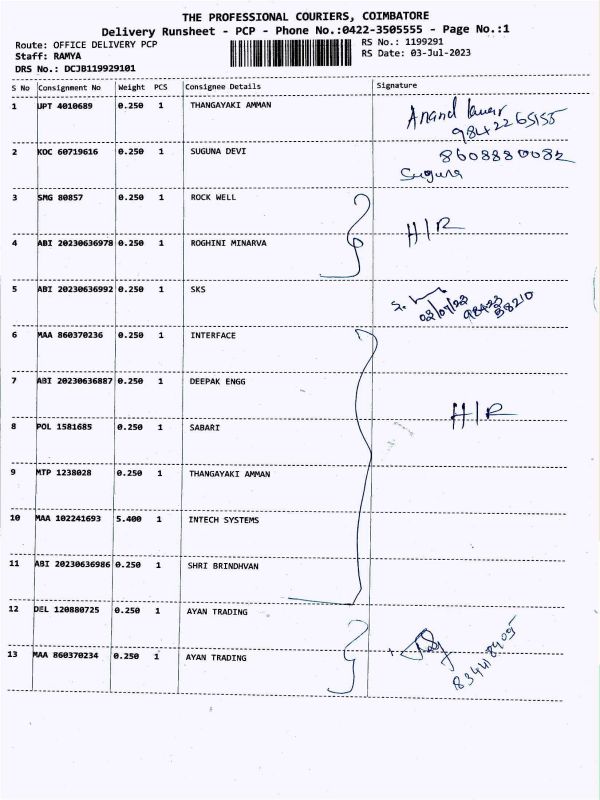 THE PROFESSIONAL COURIERS, COIMBATORE
Delivery Runsheet - PCP - Phone No.:0422-3505555 - Page No.:1
Route: OFFICE DELIVERY PCP
RS No.: 1199291
Staff: RAMYA
RS Date: 03-Jul-2023
DRS No.: DCJB119929101
S No Consignment No Weight PCS Consignee Details Signature
1 UPT 4010689 0.250 1 THANGAYAKI AMMAN Anand kumar
9842265155
2 KOC 60719616 0.250 1 SUGUNA DEVI 8608880082
Suguna
3 SMG 80857 0.250 1 ROCK WELL
H/R
4 ABI 20230636978 0.250 1 ROGHINI MINARVA
5 ABI 20230636992 0.250 1 SKS
03/07/23
6 MAA 860370236 0.250 1 INTERFACE
7 ABI 20230636887 0.250 1 DEEPAK ENGG
H/R
8 POL 1581685 0.250 1 SABARI
9 MTP 1238028 0.250 1 THANGAYAKI AMMAN
10 MAA 102241693 5.400 1 INTECH SYSTEMS
11 ABI 20230636986 0.250 1 SHRI BRINDHVAN
12 DEL 120880725 0.250 1 AYAN TRADING
13 MAA 860370234 0.250 1 AYAN TRADING